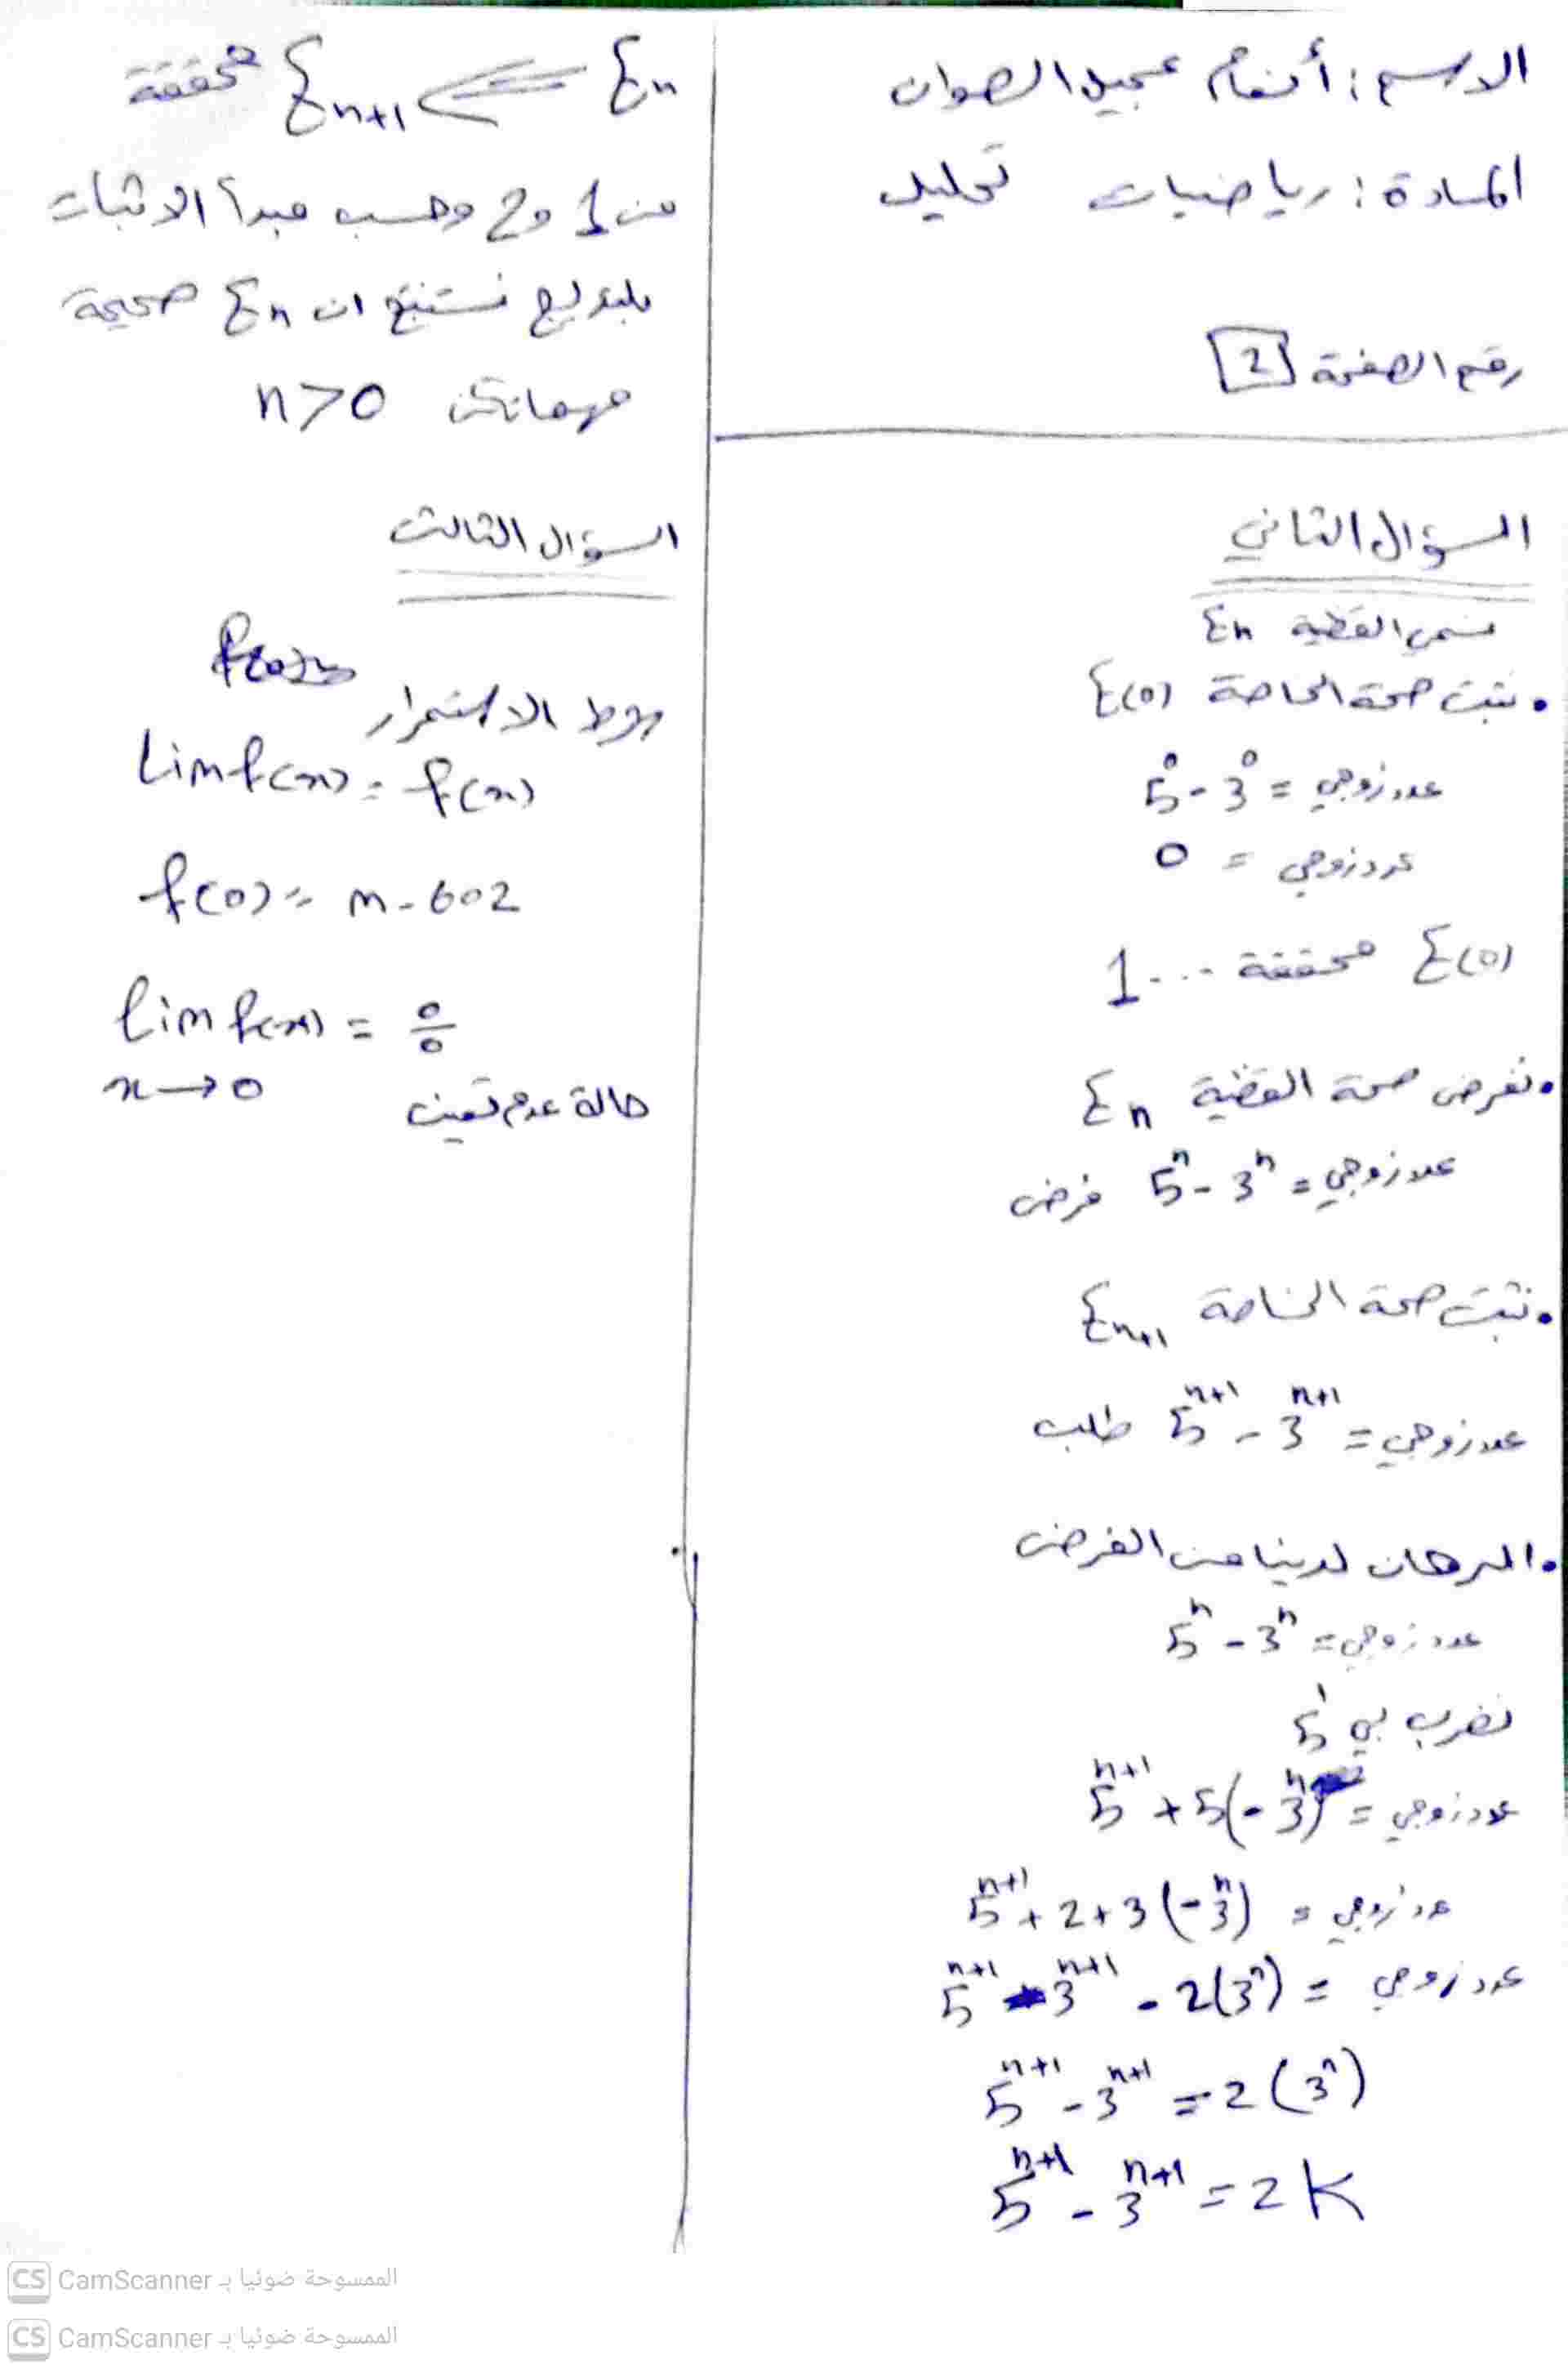 الاسم : أنغام عجيل الصوان
المادة : رياضيات تحليل
رقم الصفحة 2
السؤال الثاني
نسمي القضية En
• نثبت صحة الخاصة E(0)
5^0 - 3^0 = عدد زوجي
0 = عدد زوجي
E(0) محققة ... 1
• نفرض صحة القضية En
5^n - 3^n = عدد زوجي فرض
• نثبت صحة الخاصة En+1
5^n+1 - 3^n+1 = عدد زوجي طلب
• البرهان لدينا من الفرض
5^n - 3^n = عدد زوجي
نضرب بي 5^1
5^n+1 + 5(-3^n) = عدد زوجي
5^n+1 + 2+3(-3^n) = عدد زوجي
5^n+1 - 3^n+1 - 2(3^n) = عدد زوجي
5^n+1 - 3^n+1 = 2(3^n)
5^n+1 - 3^n+1 = 2K
En ⟹ En+1 محققة
من 1 و 2 وحسب مبدأ الاثبات
بالتدريج نستنتج ان En صحيحة
مهما تكن n>0
السؤال الثالث
شرط الاستمرار
Lim f(x) = f(x)
f(0) = m-602
lim f(x) = 0/0
x→0
حالة عدم تعيين
الممسوحة ضوئيا بـ CamScanner CS
الممسوحة ضوئيا بـ CamScanner CS